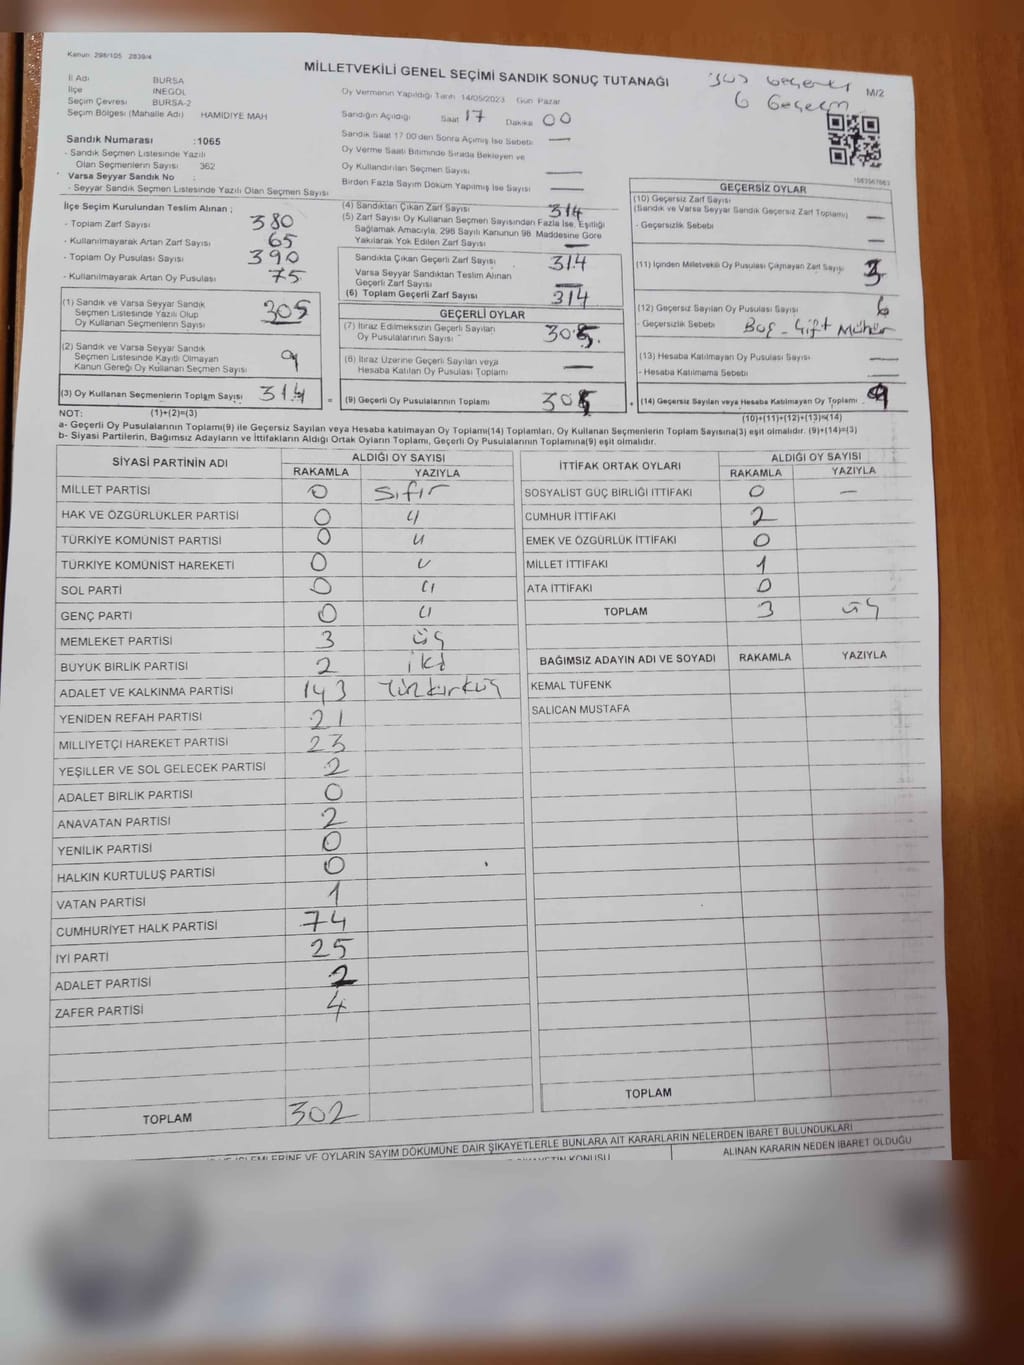 Kanun 298/105 2839/4
MİLLETVEKİLİ GENEL SEÇİMİ SANDIK SONUÇ TUTANAĞI
6 Geçersiz
M/2
İl Adı BURSA
İlçe İNEGÖL
Seçim Çevresi BURSA-2
Seçim Bölgesi (Mahalle Adı) HAMİDİYE MAH
Sandık Numarası :1065
- Sandık Seçmen Listesinde Yazılı
Olan Seçmenlerin Sayısı 362
Varsa Seyyar Sandık No
- Seyyar Sandık Seçmen Listesinde Yazılı Olan Seçmen Sayısı
Oy Vermenin Yapıldığı Tarih 14/05/2023 Gün Pazar
Sandığın Açıldığı Saat 17 Dakika 00
Sandık Saat 17 00'den Sonra Açımış İse Sebebi —
Oy Verme Saati Bitiminde Sırada Bekleyen ve
Oy Kullandırılan Seçmen Sayısı —
Birden Fazla Sayım Döküm Yapılmış İse Sayısı —
İlçe Seçim Kurulundan Teslim Alınan ;
- Toplam Zarf Sayısı 380
- Kullanılmayarak Artan Zarf Sayısı 65
- Toplam Oy Pusulası Sayısı 390
- Kullanılmayarak Artan Oy Pusulası 75
(1) Sandık ve Varsa Seyyar Sandık
Seçmen Listesinde Yazılı Olup
Oy Kullanan Seçmenlerin Sayısı 305
(2) Sandık ve Varsa Seyyar Sandık
Seçmen Listesinde Kayıtlı Olmayan
Kanun Gereği Oy Kullanan Seçmen Sayısı 9
(3) Oy Kullanan Seçmenlerin Toplam Sayısı 314
(4) Sandıktan Çıkan Zarf Sayısı 314
(5) Zarf Sayısı Oy Kullanan Seçmen Sayısından Fazla İse, Eşitliği
Sağlamak Amacıyla, 298 Sayılı Kanunun 98. Maddesine Göre
Yakılarak Yok Edilen Zarf Sayısı —
Sandıkta Çıkan Geçerli Zarf Sayısı 314
Varsa Seyyar Sandıktan Teslim Alınan
Geçerli Zarf Sayısı —
(6) Toplam Geçerli Zarf Sayısı 314
GEÇERLİ OYLAR
(7) İtiraz Edilmeksizin Geçerli Sayılan
Oy Pusulalarının Sayısı 305
(8) İtiraz Üzerine Geçerli Sayılan veya
Hesaba Katılan Oy Pusulası Toplamı —
(9) Geçerli Oy Pusulalarının Toplamı 305
GEÇERSİZ OYLAR
(10) Geçersiz Zarf Sayısı
(Sandık ve Varsa Seyyar Sandık Geçersiz Zarf Toplamı) —
- Geçersizlik Sebebi —
(11) İçinden Milletvekili Oy Pusulası Çıkmayan Zarf Sayısı 3
(12) Geçersiz Sayılan Oy Pusulası Sayısı 6
- Geçersizlik Sebebi Boş - Çift Mühür
(13) Hesaba Katılmayan Oy Pusulası Sayısı —
- Hesaba Katılmama Sebebi —
(14) Geçersiz Sayılan veya Hesaba Katılmayan Oy Toplamı 9
NOT: (1)+(2)=(3) (10)+(11)+(12)+(13)=(14)
a- Geçerli Oy Pusulalarının Toplamı(9) ile Geçersiz Sayılan veya Hesaba katılmayan Oy Toplamı(14) Toplamları, Oy Kullanan Seçmenlerin Toplam Sayısına(3) eşit olmalıdır. (9)+(14)=(3)
b- Siyasi Partilerin, Bağımsız Adayların ve İttifakların Aldığı Ortak Oyların Toplamı, Geçerli Oy Pusulalarının Toplamına(9) eşit olmalıdır.
SİYASİ PARTİNİN ADI ALDIĞI OY SAYISI
RAKAMLA YAZIYLA
MİLLET PARTİSİ 0 Sıfır
HAK VE ÖZGÜRLÜKLER PARTİSİ 0 "
TÜRKİYE KOMÜNİST PARTİSİ 0 "
TÜRKİYE KOMÜNİST HAREKETİ 0 "
SOL PARTİ 0 "
GENÇ PARTİ 0 "
MEMLEKET PARTİSİ 3 üç
BÜYÜK BİRLİK PARTİSİ 2 iki
ADALET VE KALKINMA PARTİSİ 143 Yüzkırküç
YENİDEN REFAH PARTİSİ 21
MİLLİYETÇİ HAREKET PARTİSİ 23
YEŞİLLER VE SOL GELECEK PARTİSİ 2
ADALET BİRLİK PARTİSİ 0
ANAVATAN PARTİSİ 2
YENİLİK PARTİSİ 0
HALKIN KURTULUŞ PARTİSİ 0
VATAN PARTİSİ 1
CUMHURİYET HALK PARTİSİ 74
İYİ PARTİ 25
ADALET PARTİSİ 2
ZAFER PARTİSİ 4
TOPLAM 302
İTTİFAK ORTAK OYLARI ALDIĞI OY SAYISI
RAKAMLA YAZIYLA
SOSYALİST GÜÇ BİRLİĞİ İTTİFAKI 0 —
CUMHUR İTTİFAKI 2
EMEK VE ÖZGÜRLÜK İTTİFAKI 0
MİLLET İTTİFAKI 1
ATA İTTİFAKI 0
TOPLAM 3 üç
BAĞIMSIZ ADAYIN ADI VE SOYADI RAKAMLA YAZIYLA
KEMAL TÜFENK
SALİCAN MUSTAFA
TOPLAM
İŞLEMLERİNE VE OYLARIN SAYIM DÖKÜMÜNE DAİR ŞİKAYETLERLE BUNLARA AİT KARARLARIN NELERDEN İBARET BULUNDUKLARI
KONUSU ALINAN KARARIN NEDEN İBARET OLDUĞU